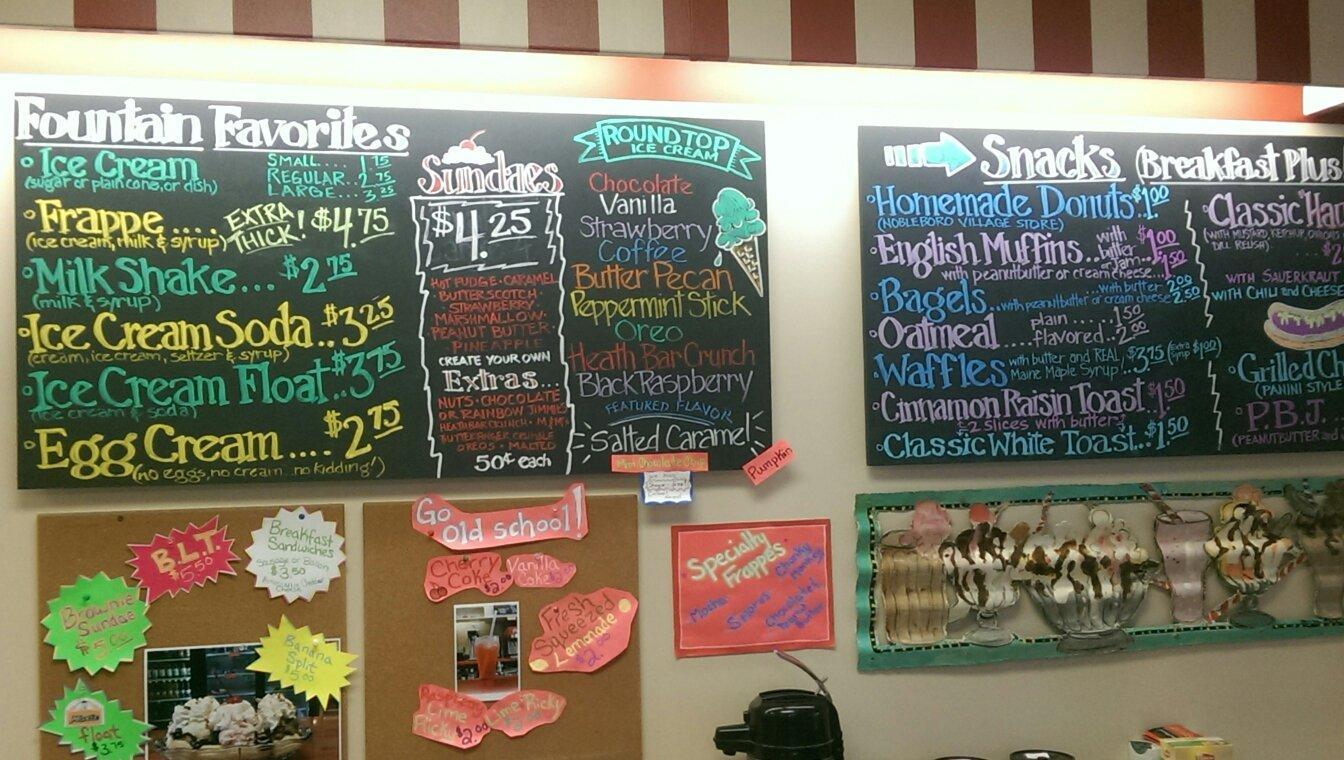 Fountain Favorites
Ice Cream
(sugar or plain cone, or dish)
SMALL.... 1.75
REGULAR.. 2.75
LARGE... 3.25
Frappe .... EXTRA THICK! $4.75
(ice cream, milk & syrup)
Milk Shake... $2.75
(milk & syrup)
Ice Cream Soda.. $3.25
(cream, ice cream, seltzer & syrup)
Ice Cream Float.. $3.75
(ice cream & soda)
Egg Cream .... $2.75
(no eggs, no cream... no kidding!)
Sundaes
$4.25
HOT FUDGE · CARAMEL
BUTTERSCOTCH ·
STRAWBERRY
MARSHMALLOW ·
PEANUT BUTTER ·
PINEAPPLE
CREATE YOUR OWN
Extras...
NUTS · CHOCOLATE
OR RAINBOW JIMMIES
HEATH BAR CRUNCH · M&M's
BUTTERFINGER CRUMBLE
OREOS · MALTED
50¢ each
ROUND TOP
ICE CREAM
Chocolate
Vanilla
Strawberry
Coffee
Butter Pecan
Peppermint Stick
Oreo
Heath Bar Crunch
Black Raspberry
FEATURED FLAVOR
Salted Caramel
Mint Chocolate Chip
Pumpkin
Snacks (Breakfast Plus
Homemade Donuts $1.00
(NOBLEBORO VILLAGE STORE)
English Muffins.. with butter $1.00
jam... $1.50
with peanutbutter or cream cheese...
Bagels ...with butter 2.00
...with peanutbutter or cream cheese 2.50
Oatmeal plain ..... 1.50
....flavored.. 2.00
Waffles with butter and REAL Maine Maple Syrup! .. $3.75 (Extra Syrup $1.00)
Cinnamon Raisin Toast $1.50
2 slices with butter
Classic White Toast.. $1.50
Classic Ha
(WITH MUSTARD, KETCHUP,
DILL RELISH)
WITH SAUERKRAUT
WITH CHILI and CHEESE
Grilled Ch
(PANINI STYL
P.B.J.
(PEANUTBUTTER
B.L.T.
$5.50
Breakfast
Sandwiches
Sausage or Bacon
$3.50
Brownie
Sundae
$5.00
Banana
Split
$5.00
float
$3.75
Go Old School!
Cherry
Coke $2.00
Vanilla
Coke
Fresh
Squeezed
Lemonade
$2.
Raspberry
Lime
Ricky $2.00
Lime Ricky
Specialty
Frappes
Mocha
S'mores
Chunky
Monkey
Chocolate
Peanut
Butter